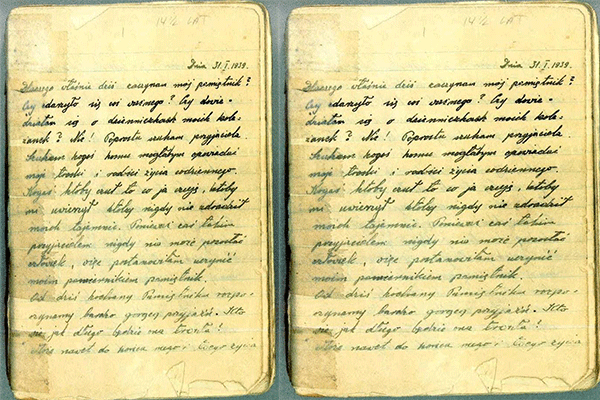 14½ LAT
Dnia 31.I.1939.
Dlaczego właśnie dziś zaczynam mój pamiętnik?
Czy zdarzyło się coś ważnego? Czy dowie-
działam się o dzienniczkach moich kole-
żanek? Nie! Poprostu szukam przyjaciela
Szukam kogoś komu mogłabym opowiadać
moje troski i radości życia codziennego.
Kogoś ktoby czuł to co ja czuję, ktoby
mi uwierzył ktoby nigdy nie zdradził
moich tajemnic. Ponieważ takim
przyjacielem nigdy nie może pozostać
człowiek, więc postanowiłam uczynić
moim powiernikiem pamiętnik.
Od dziś kochany Pamiętniku rozpo-
czynamy bardzo gorącą przyjaźń. Kto
wie jak długo będzie ona trwała!
Może nawet do końca mego i twego życia
14½ LAT
Dnia 31.I.1939.
Dlaczego właśnie dziś zaczynam mój pamiętnik?
Czy zdarzyło się coś ważnego? Czy dowie-
działam się o dzienniczkach moich kole-
żanek? Nie! Poprostu szukam przyjaciela
Szukam kogoś komu mogłabym opowiadać
moje troski i radości życia codziennego.
Kogoś ktoby czuł to co ja czuję, ktoby
mi uwierzył ktoby nigdy nie zdradził
moich tajemnic. Ponieważ takim
przyjacielem nigdy nie może pozostać
człowiek, więc postanowiłam uczynić
moim powiernikiem pamiętnik.
Od dziś kochany Pamiętniku rozpo-
czynamy bardzo gorącą przyjaźń. Kto
wie jak długo będzie ona trwała!
Może nawet do końca mego i twego życia